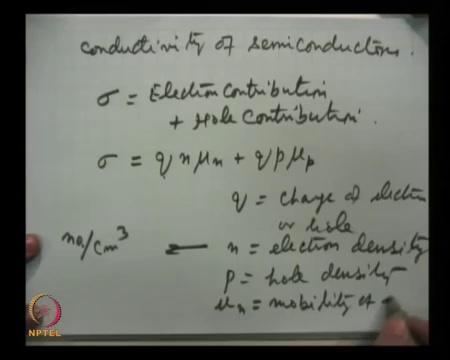 conductivity of semiconductors.
σ = Electron contribution
+ Hole contribution.
σ = q n μn + q p μp
q = charge of electron
or hole
no/cm³ ← n = electron density
p = hole density
μn = mobility of
NPTEL